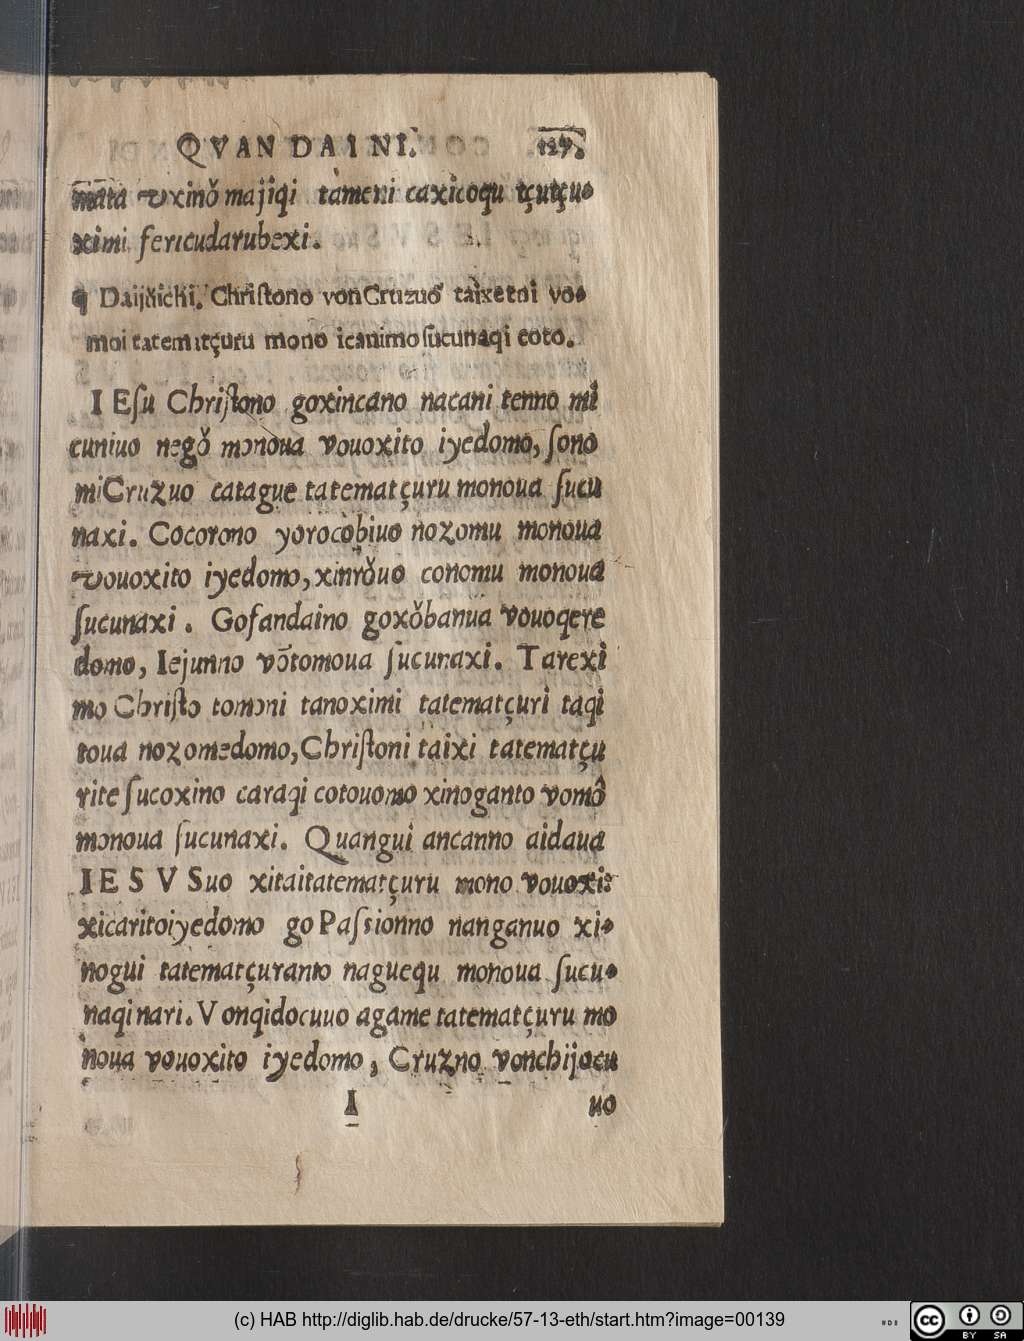 QVAN DAI NI. 129.
mata vxinŏ majiqi tameni caxicoqu tçutçu-
ximi fericudarubexi.
¶ Daijŭichi. Chriſtono von Cruzuo taixetni vo-
moi tatematçuru mono icanimo ſucunaqi coto.
IEſu Chriſtono goxincano nacani tenno mi
cuniuo negŏ monoua vouoxito iyedomo, ſono
miCruzuo catague tatematçuru monoua ſucu
naxi. Cocorono yorocobiuo nozomu monoua
vouoxito iyedomo, xinrŏuo conomu monoua
ſucunaxi. Gofandaino goxŏbanua vouoqere
domo, Iejunno võtomoua ſucunaxi. Tarexi
mo Chriſto tomoni tanoximi tatematçuri taqi
toua nozomedomo, Chriſtoni taixi tatematçu
rite ſucoxino caraqi cotouomo xinoganto vomô
monoua ſucunaxi. Quangui ancanno aidaua
IESVSuo xitaitatematçuru mono vouoxi:
xicaritoiyedomo go Paſsionno nanganuo xi-
nogui tatematçuranto naguequ monoua ſucu-
naqi nari. Vonqidocuuo agame tatematçuru mo
noua vouoxito iyedomo, Cruzno vonchijocu
I uo
(c) HAB http://diglib.hab.de/drucke/57-13-eth/start.htm?image=00139
cc BY SA